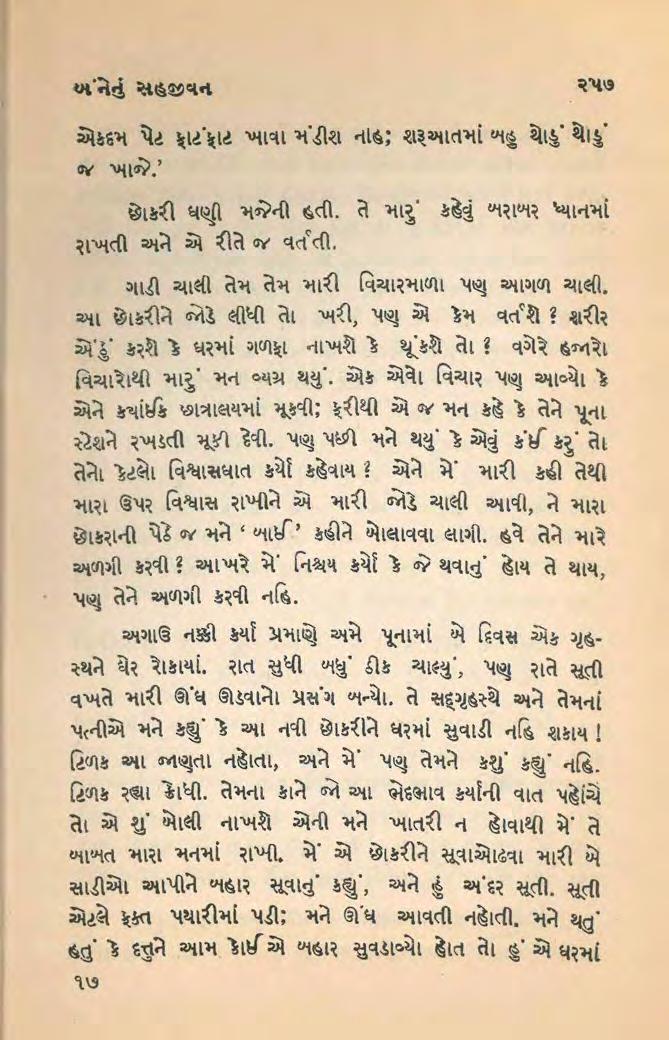 બંનેનું સહજીવન ૨૫૭
એકદમ પેટ ફાટંફાટ ખાવા મંડીશ નહિ; શરૂઆતમાં બહુ થોડું થોડું
જ ખાજે.’
છોકરી ઘણી મજેની હતી. તે મારું કહેવું બરાબર ધ્યાનમાં
રાખતી અને એ રીતે જ વર્તતી.
ગાડી ચાલી તેમ તેમ મારી વિચારમાળા પણ આગળ ચાલી.
આ છોકરીને જોડે લીધી તો ખરી, પણ એ કેમ વર્તશે ? શરીર
એંઠું કરશે કે ઘરમાં ગળફા નાખશે કે થૂંકશે તો ? વગેરે હજારો
વિચારોથી મારું મન વ્યગ્ર થયું. એક એવો વિચાર પણ આવ્યો કે
એને કયાંઈક છાત્રાલયમાં મૂકવી; ફરીથી એ જ મન કહે કે તેને પૂના
સ્ટેશને રખડતી મૂકી દેવી. પણ પછી મને થયું કે એવું કંઈ કરું તો
તેનો કેટલો વિશ્વાસઘાત કર્યો કહેવાય ? એને મેં મારી કહી તેથી
મારા ઉપર વિશ્વાસ રાખીને એ મારી જોડે ચાલી આવી, ને મારા
છોકરાની પેઠે જ મને ‘ બાઈ ’ કહીને બોલાવવા લાગી. હવે તેને મારે
અળગી કરવી ? આખરે મેં નિશ્ચય કર્યો કે જે થવાનું હોય તે થાય,
પણ તેને અળગી કરવી નહિ.
અગાઉ નક્કી કર્યા પ્રમાણે અમે પૂનામાં બે દિવસ એક ગૃહ-
સ્થને ઘેર રોકાયાં. રાત સુધી બધું ઠીક ચાલ્યું, પણ રાતે સૂતી
વખતે મારી ઊંઘ ઊડવાનો પ્રસંગ બન્યો. તે સદ્‍ગૃહસ્થે અને તેમનાં
પત્નીએ મને કહ્યું કે આ નવી છોકરીને ઘરમાં સુવાડી નહિ શકાય !
ટિળક આ જાણતા નહોતા, અને મેં પણ તેમને કશું કહ્યું નહિ.
ટિળક રહ્યા ક્રોધી. તેમના કાને જો આ ભેદભાવ કર્યાની વાત પહોંચે
તો એ શું બોલી નાખશે એની મને ખાતરી ન હોવાથી મેં તે
બાબત મારા મનમાં રાખી. મેં એ છોકરીને સૂવાઓઢવા મારી બે
સાડીઓ આપીને બહાર સૂવાનું કહ્યું, અને હું અંદર સૂતી. સૂતી
એટલે ફક્ત પથારીમાં પડી; મને ઊંઘ આવતી નહોતી. મને થતું
હતું કે દત્તુને આમ કોઈએ બહાર સુવડાવ્યો હોત તો હું એ ઘરમાં
૧૭